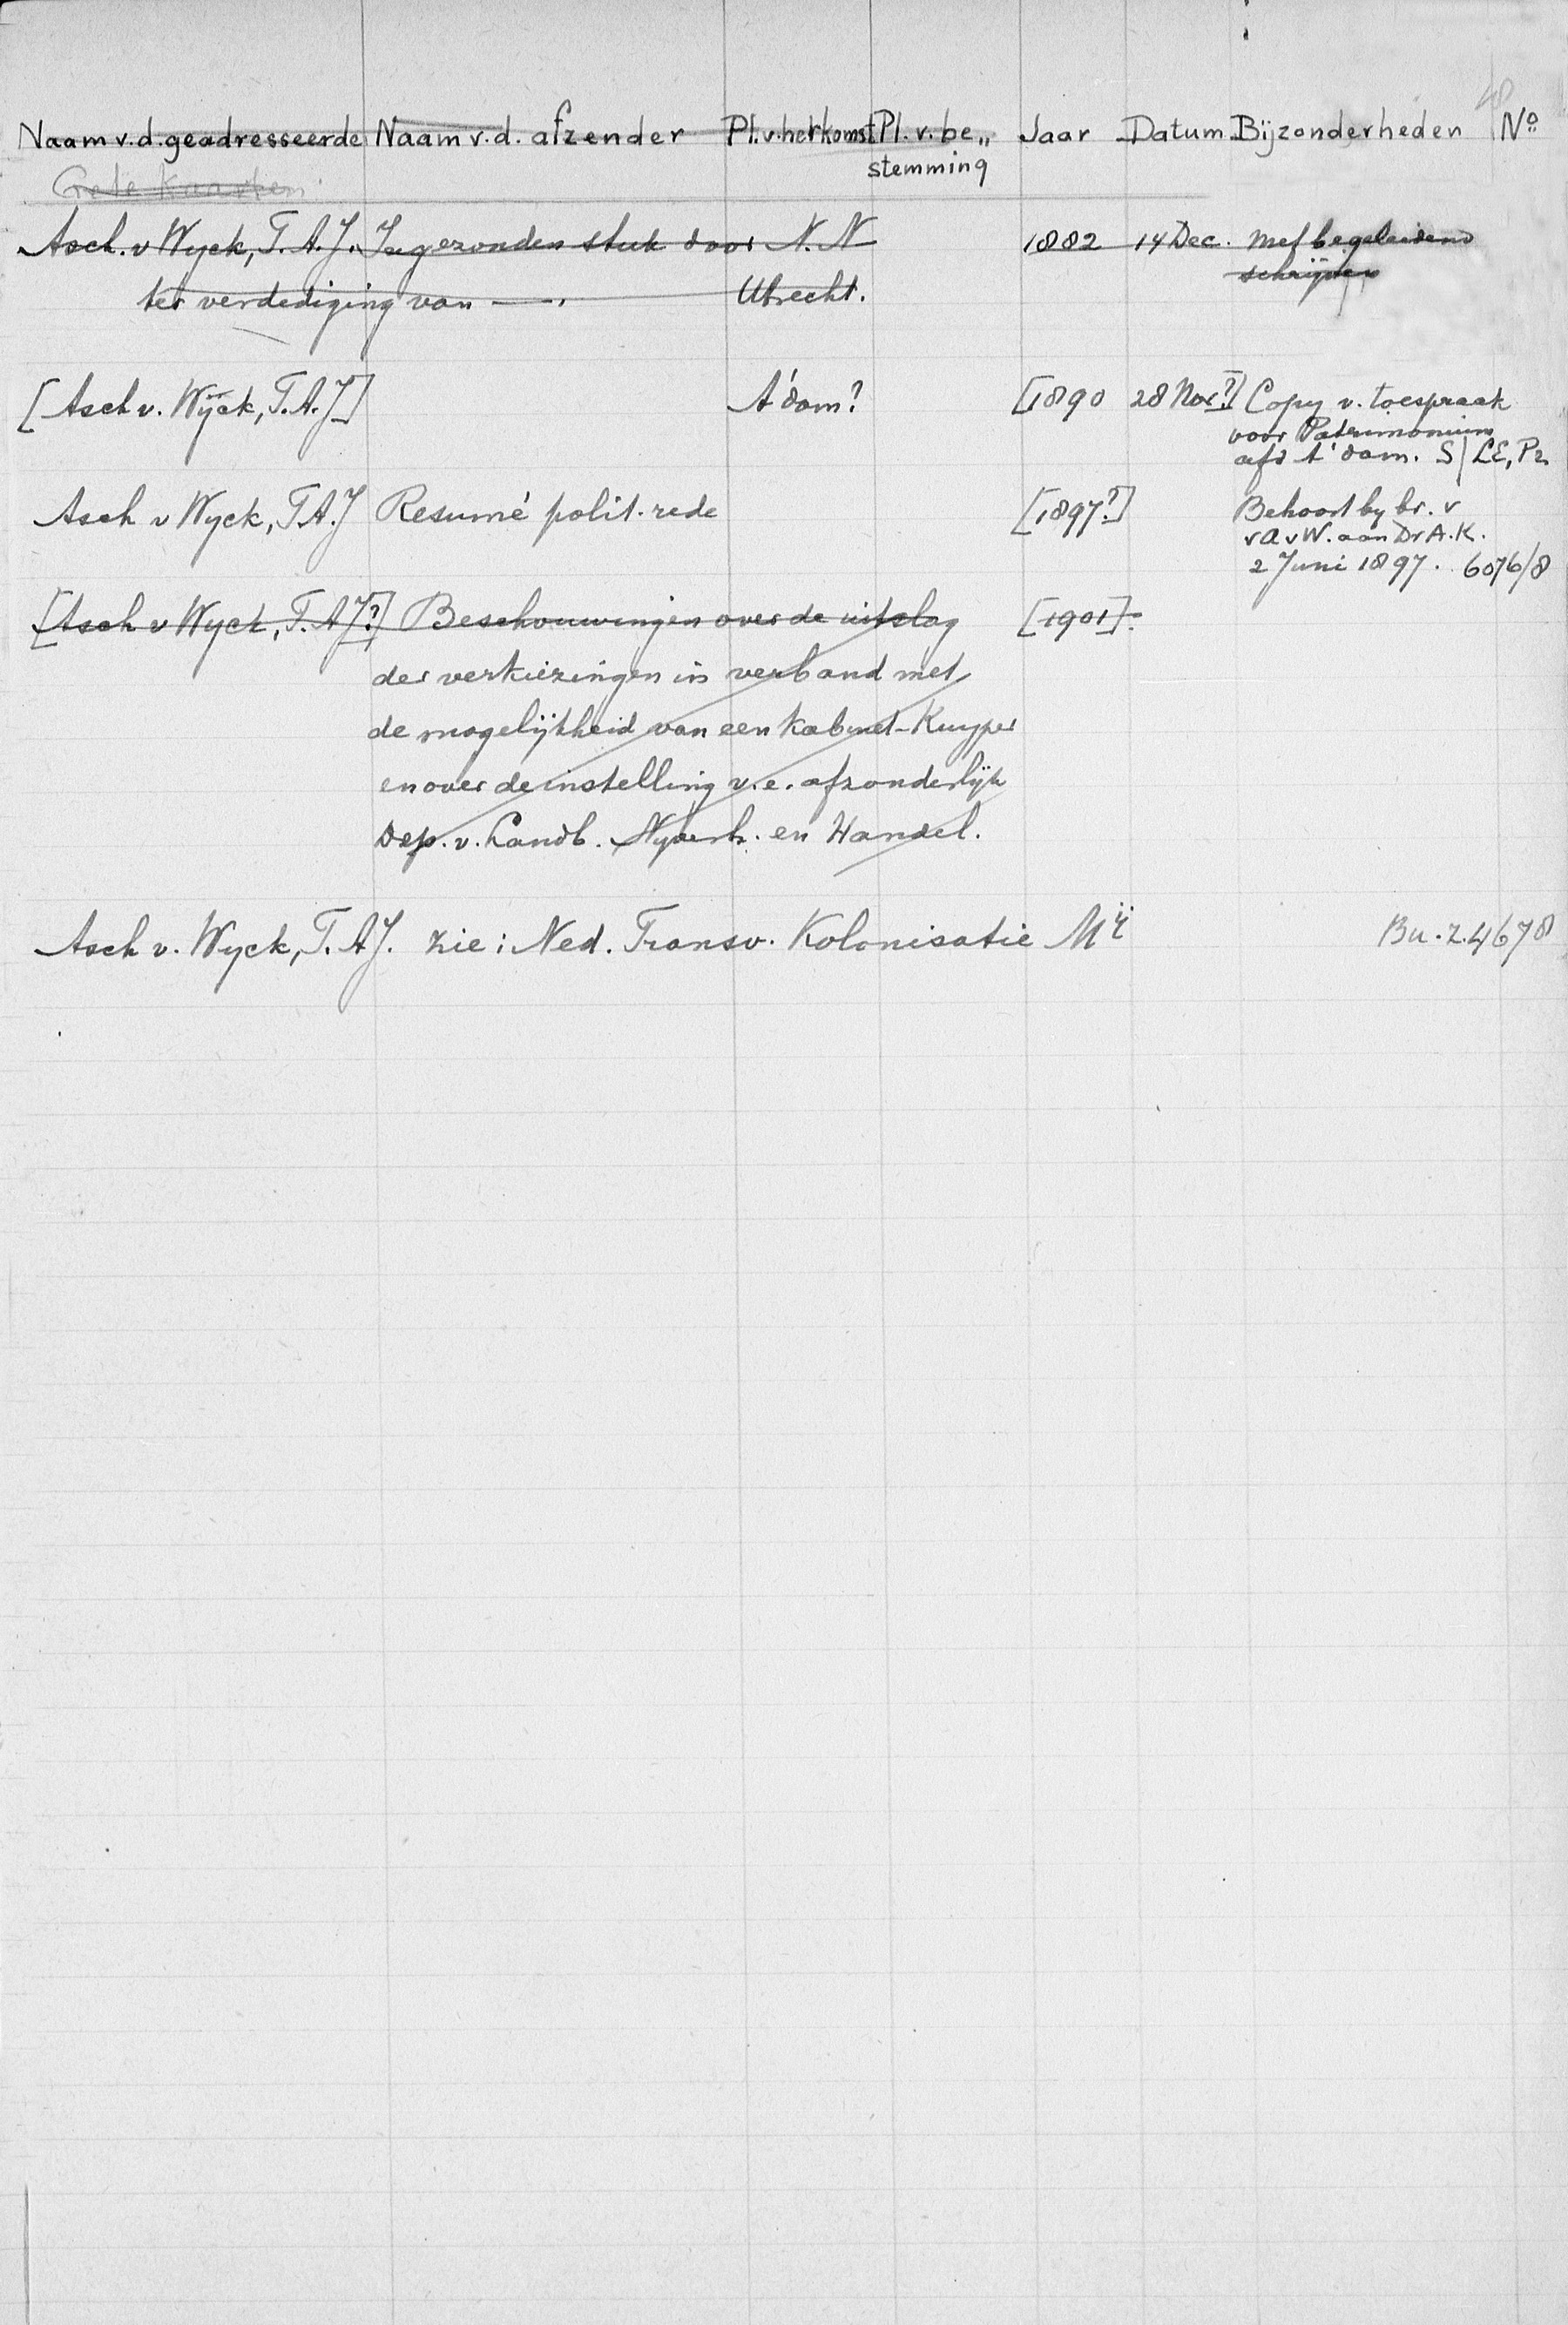 48
Naam v.d. geadresseerde Naam v.d. afzender Pl. v. herkomst Pl. v. be„ Jaar Datum Bijzonderheden No
stemming
Grote Kaarten
Asch. v Wyck, T. A. J. Ingezonden stuk door N. N 1882 14 Dec. met begeleidend
schrijven
ter verdediging van —. Utrecht.
[Asch v. Wyck, T. A. J] A'dam? [1890 28 Nov?] Copy v. toespraak
voor Patrimonium
afd A'dam. S/LE, Pr
Asch v Wyck, T A. J Resumé polit. rede [1897?] Behoort by br. v
v A v W. aan Dr A. K.
2 Juni 1897. 6076/8
[Asch v Wyck, T. A J?] Beschouwingen over de uitslag [1901].
der verkiezingen in verband met
de mogelijkheid van een kabinet-Kuyper
en over de instelling v. e. afzonderlijk
Dep. v. Landb. Nyverh. en Handel.
Asch v. Wyck, T. A J. zie: Ned. Transv. Kolonisatie Mij Bu. Z. 4678